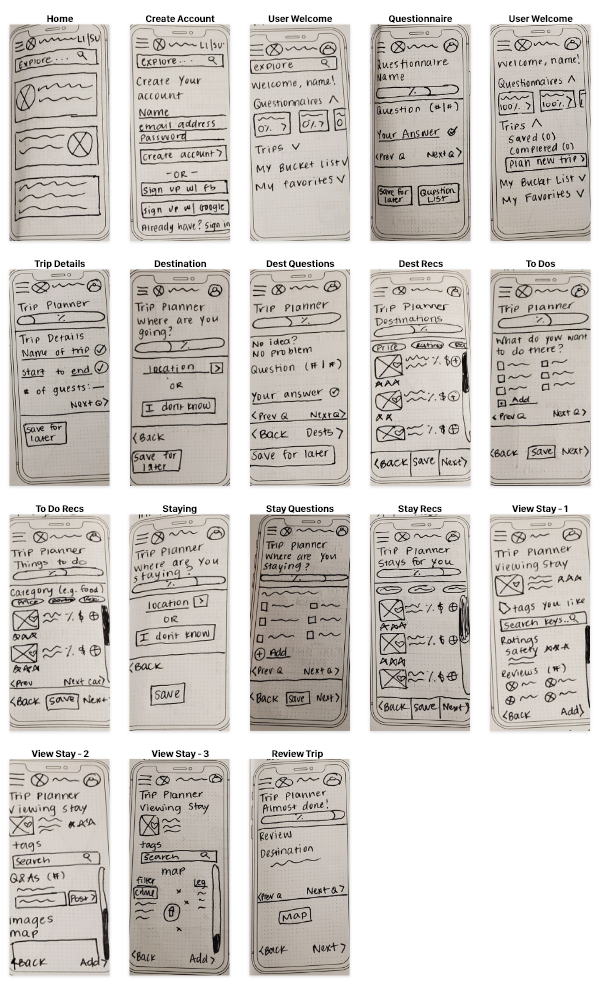 Home
LI/SU
Explore...
Create Account
LI/SU
explore...
Create Your
account
Name
email address
Password
Create account >
-OR-
Sign up w/ fb
sign up w/ Google
Already have? Sign in
User Welcome
explore
Welcome, name!
Questionnaires
0% >
0% >
0
Trips
My Bucket list
My favorites
Questionnaire
Questionnaire
Name
%
Question (#/#)
Your Answer
<Prev Q Next Q>
Save for
later
Question
List
User Welcome
Welcome, name!
Questionnaires
100% >
100% >
Trips
Saved (0)
Completed (0)
plan new trip >
My Bucket List
My Favorites
Trip Details
Trip Planner
%
Trip Details
Name of trip
start to end
# of guests: —
Next Q>
Save for
later
Destination
Trip Planner
Where are you
going?
%
location >
OR
I don't know
<Back
Save for
later
Dest Questions
Trip Planner
%
No idea?
No problem
Question (#/#)
Your answer
<Prev Q Next Q>
<Back Dests >
Save for later
Dest Recs
Trip Planner
Destinations
%
Price Rating
% $ +
% $ +
% $ +
<Back Save Next>
To Dos
Trip Planner
%
What do you want
to do there?
+ Add
<Prev Q Next Q>
<Back Save Next>
To Do Recs
Trip Planner
Things to do
Category (e.g. food)
Price
% $ +
% $ +
<Prev Next cat>
<Back Save Next
Staying
Trip Planner
Where are you
staying?
location >
OR
I don't know
<Back
Save
Stay Questions
Trip Planner
Where are you
staying?
%
+ Add
<Prev Q Next Q>
<Back Save Next>
Stay Recs
Trip Planner
Stays for you
%
% $ +
% $ +
% $ +
<Back Save Next>
View Stay - 1
Trip Planner
Viewing stay
tags you like
search keys..
Ratings
safety
Reviews (#)
<Back Add>
View Stay - 2
Trip Planner
Viewing stay
tags
search
Q&As (#)
Post >
images
map
<Back Add>
View Stay - 3
Trip Planner
Viewing Stay
tags
search
map
filter
crime
Leg
<Back Add>
Review Trip
Trip Planner
Almost done!
%
Review
Destination
<Prev Q Next Q>
Map
<Back Next>